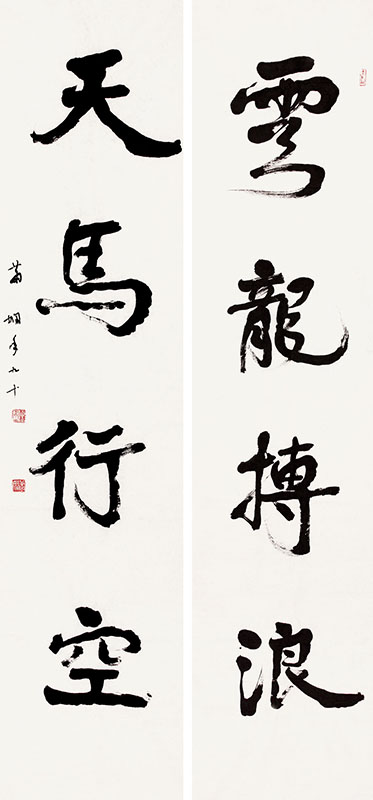 雲龍搏浪
天馬行空
蕭嫻年九十